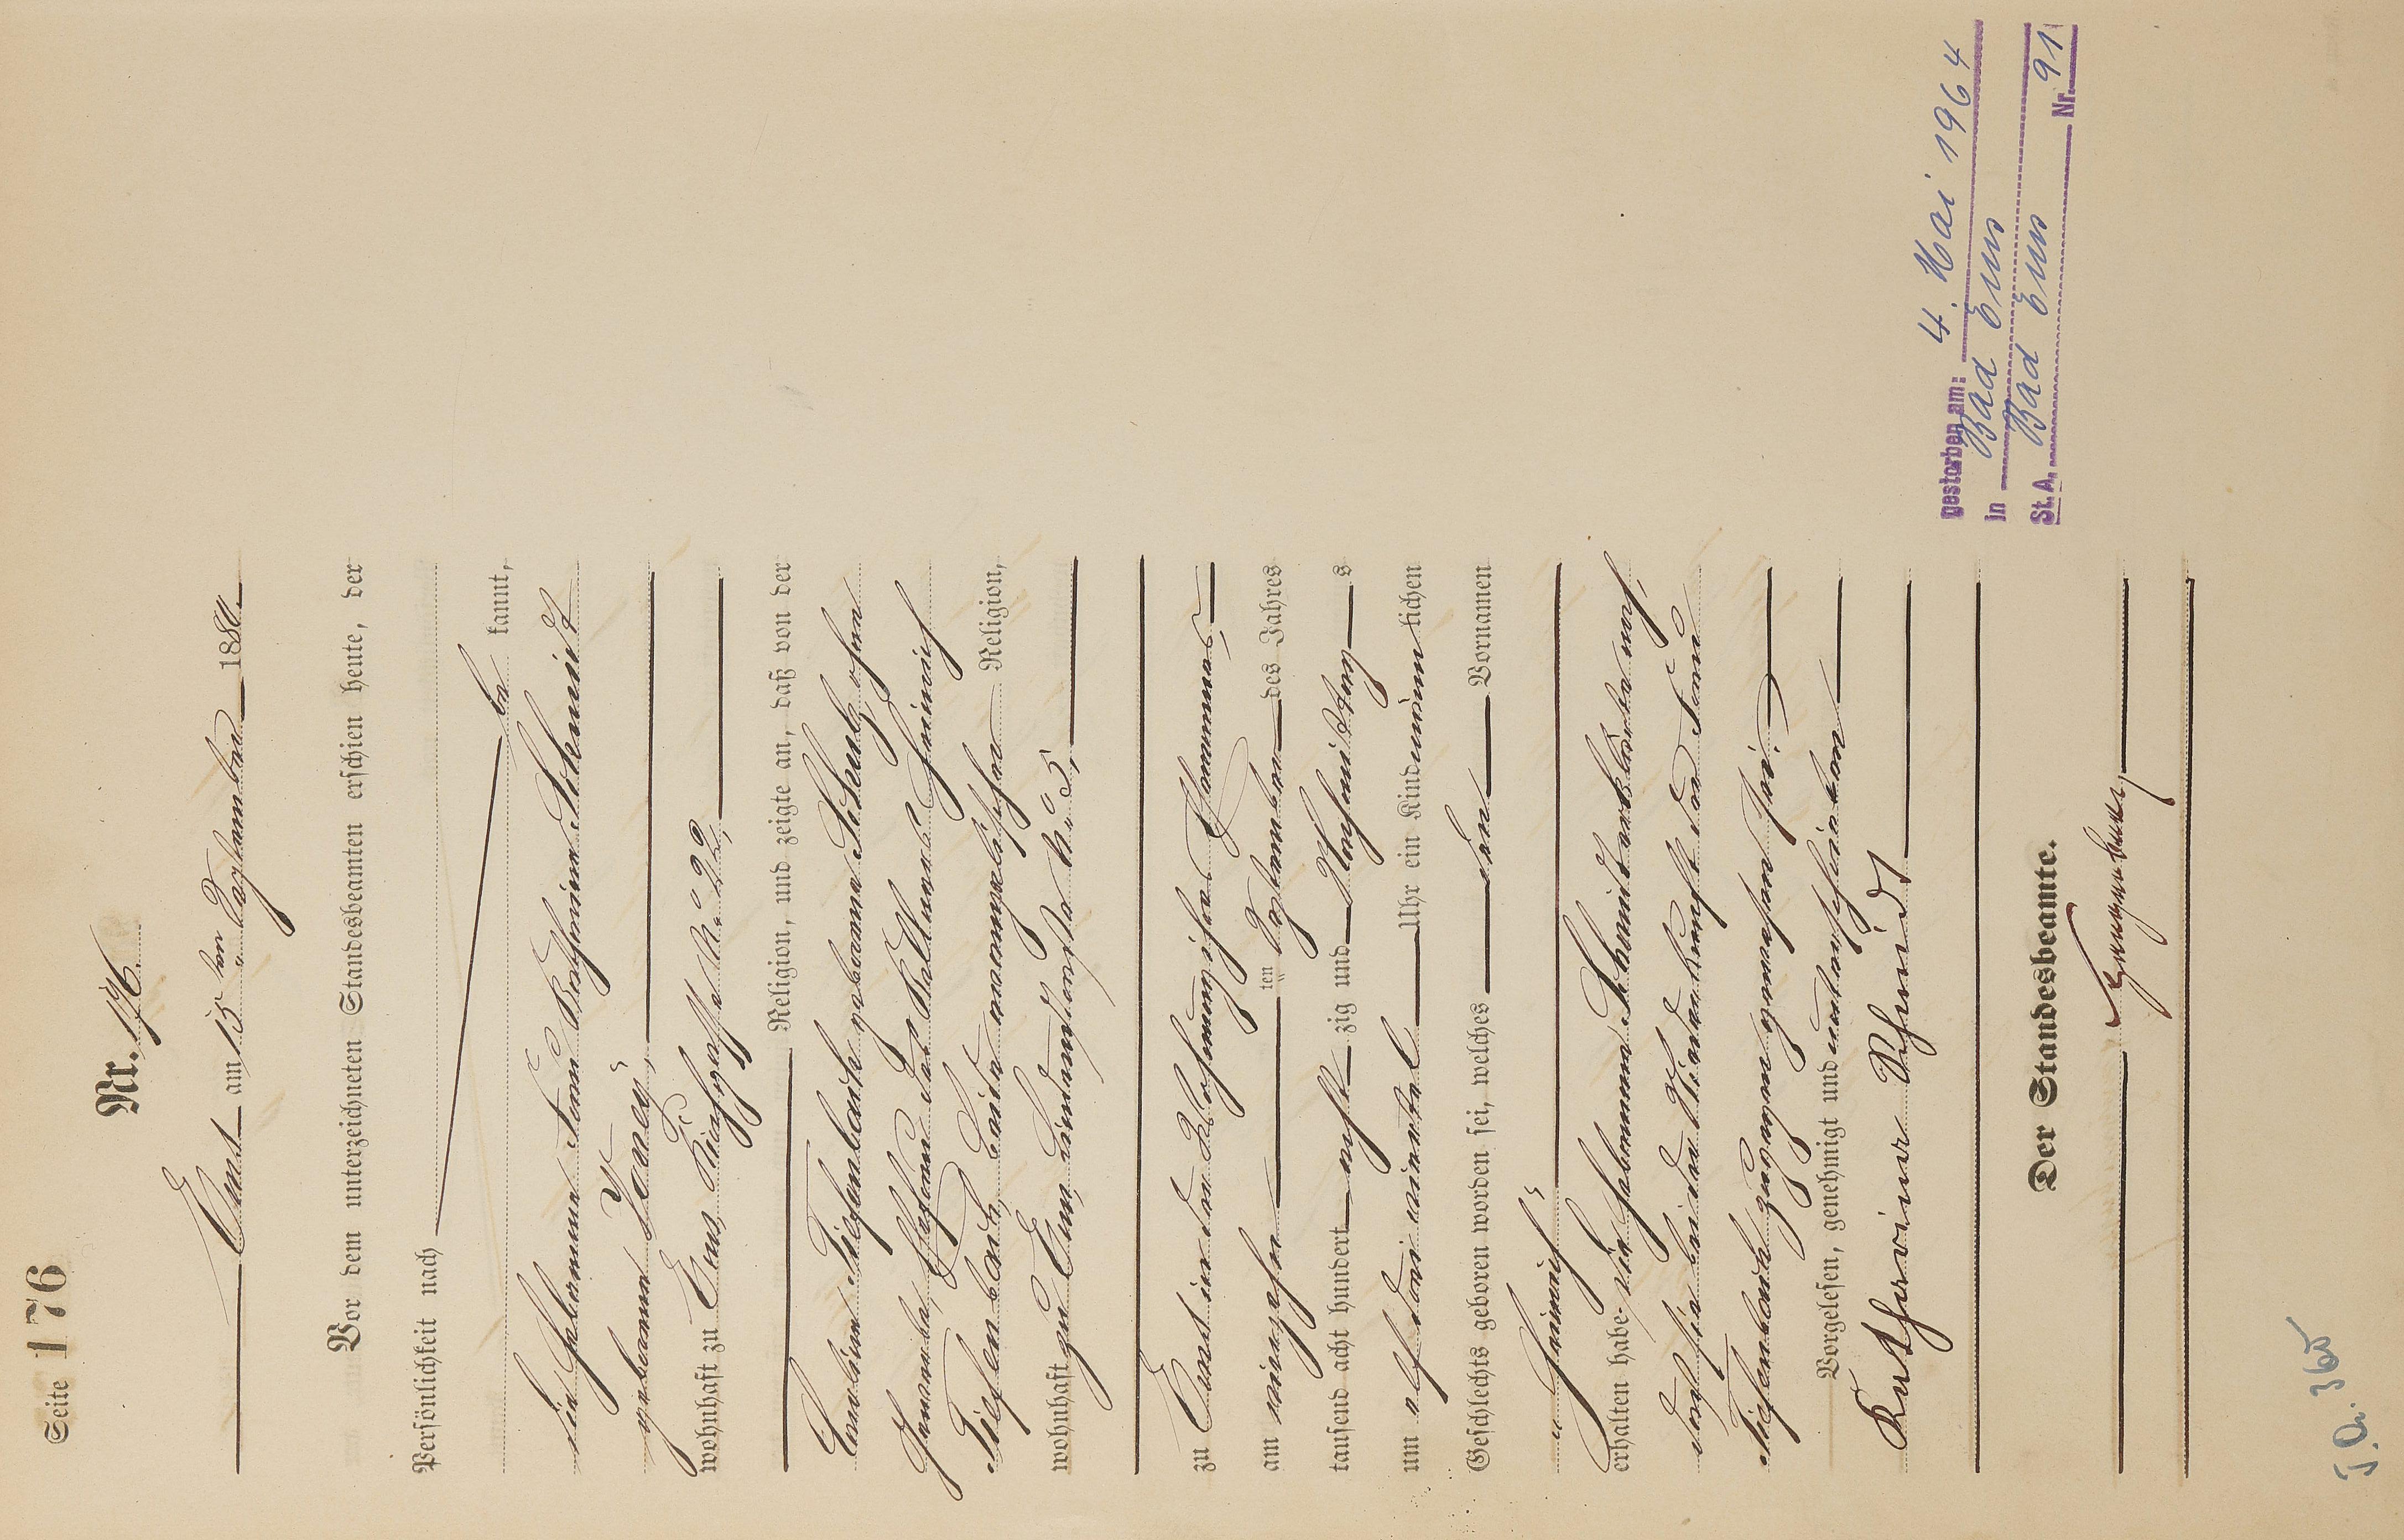 Seite 176
Nr. 176.
Ems am 15ten September 1880.
Vor dem unterzeichneten Standesbeamten erschien heute, der
Persönlichkeit nach
be kannt,
die Hebamme Frau Katharina Schmidt
geborene
wohnhaft zu Ems, Kirchgasse No. 22,
Religion, und zeigte an, daß von der
Tiefenbach geborene Schulz, ohne
Gewerbe, Ehefrau des Heinrich
Tiefenbach, beide evangelischer Religion,
wohnhaft zu Ems, No. 5,
zu Ems in der Wohnung ihres Ehemannes,
am vierzehn ten September des Jahres
tausend acht hundert acht zig und Nachmittags
um elf drei viertel Uhr ein Kind männlichen
Geschlechts geboren worden sei, welches den Vornamen
Heinrich
erhalten habe. Die Hebamme Schmidt erklärte noch,
daß sie bei der Niederkunft der Frau
Tiefenbach zugegen gewesen sei.
Vorgelesen, genehmigt und unterschrieben
Katharina Schmidt
Der Standesbeamte.
Gestorben am: 4. Mai 1964
in Bad Ems
St. A. Bad Ems Nr. 91